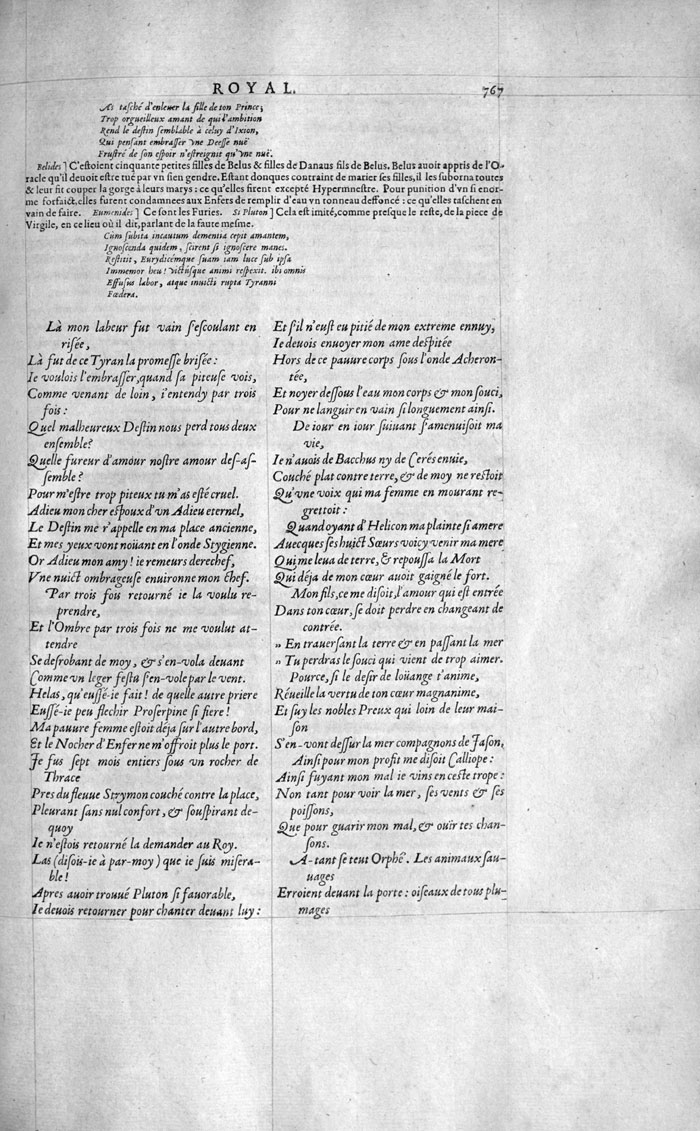 ROYAL. 767
As taſché d'enleuer la fille de ton Prince;
Trop orgueilleux amant de qui l'ambition
Rend le deſtin ſemblable à celuy d'Ixion,
Qui penſant embraſſer vne Deeſſe nuë
Fruſtré de ſon eſpoir n'eſtreignit qu'vne nuë.
Belides] C'eſtoient cinquante petites filles de Belus & filles de Danaus fils de Belus. Belus auoit appris de l'O-
racle qu'il deuoit eſtre tué par vn ſien gendre. Eſtant donques contraint de marier ſes filles, il les ſuborna toutes
& leur fit couper la gorge à leurs marys : ce qu'elles firent excepté Hypermneſtre. Pour punition d'vn ſi enor-
me forfaict, elles furent condamnees aux Enfers de remplir d'eau vn tonneau deffoncé : ce qu'elles taſchent en
vain de faire. Eumenides] Ce ſont les Furies. Si Pluton] Cela eſt imité, comme preſque le reſte, de la piece de
Virgile, en ce lieu où il dit, parlant de la faute meſme.
Cùm ſubita incautum dementia cepit amantem,
Ignoſcenda quidem, ſcirent ſi ignoſcere manes.
Reſtitit, Eurydicémque ſuam iam luce ſub ipſa
Immemor heu! victuſque animi reſpexit. ibi omnis
Effuſus labor, atque inuicti rupta Tyranni
Fœdera.
Là mon labeur fut vain s'eſcoulant en
riſée,
Là fut de ce Tyran la promeſſe briſée :
Ie voulois l'embraſſer, quand ſa piteuſe vois,
Comme venant de loin, i'entendy par trois
fois :
Quel malheureux Deſtin nous perd tous deux
enſemble?
Quelle fureur d'amour noſtre amour deſ-aſ-
ſemble?
Pour m'eſtre trop piteux tu m'as eſté cruel.
Adieu mon cher eſpoux d'vn Adieu eternel,
Le Deſtin me r'appelle en ma place ancienne,
Et mes yeux vont noüant en l'onde Stygienne.
Or Adieu mon amy! ie remeurs derechef,
Vne nuict ombrageuſe enuironne mon chef.
Par trois fois retourné ie la voulu re-
prendre,
Et l'Ombre par trois fois ne me voulut at-
tendre
Se deſrobant de moy, & s'en-vola deuant
Comme vn leger feſtu s'en-vole par le vent.
Helas, qu'euſſé-ie fait! de quelle autre priere
Euſſé-ie peu flechir Proſerpine ſi fiere!
Ma pauure femme eſtoit déja ſur l'autre bord,
Et le Nocher d'Enfer ne m'offroit plus le port.
Ie fus ſept mois entiers ſous vn rocher de
Thrace
Pres du fleuue Strymon couché contre la place,
Pleurant ſans nul confort, & ſouſpirant de-
quoy
Ie n'eſtois retourné la demander au Roy.
Las (diſois-ie à par-moy) que ie ſuis miſera-
ble!
Apres auoir trouué Pluton ſi fauorable,
Ie deuois retourner pour chanter deuant luy :
Et s'il n'euſt eu pitié de mon extreme ennuy,
Ie deuois enuoyer mon ame deſpitée
Hors de ce pauure corps ſous l'onde Acheron-
tée,
Et noyer deſſous l'eau mon corps & mon ſouci,
Pour ne languir en vain ſi longuement ainſi.
De iour en iour ſuiuant s'amenuiſoit ma
vie,
Ie n'auois de Bacchus ny de Cerés enuie,
Couché plat contre terre, & de moy ne reſtoit
Qu'vne voix qui ma femme en mourant re-
grettoit :
Quand oyant d'Helicon ma plainte ſi amere
Auecques ſes huict Sœurs voicy venir ma mere
Qui me leua de terre, & repouſſa la Mort
Qui déja de mon cœur auoit gaigné le fort.
Mon fils, ce me diſoit, l'amour qui eſt entrée
Dans ton cœur, ſe doit perdre en changeant de
contrée.
» En trauerſant la terre & en paſſant la mer
» Tu perdras le ſouci qui vient de trop aimer.
Pource, ſi le deſir de loüange t'anime,
Réueille la vertu de ton cœur magnanime,
Et ſuy les nobles Preux qui loin de leur mai-
ſon
S'en-vont deſſur la mer compagnons de Jaſon,
Ainſi pour mon profit me diſoit Calliope :
Ainſi fuyant mon mal ie vins en ceſte trope :
Non tant pour voir la mer, ſes vents & ſes
poiſſons,
Que pour guarir mon mal, & ouïr tes chan-
ſons.
A-tant ſe teut Orphé. Les animaux ſau-
uages
Erroient deuant la porte : oiſeaux de tous plu-
mages